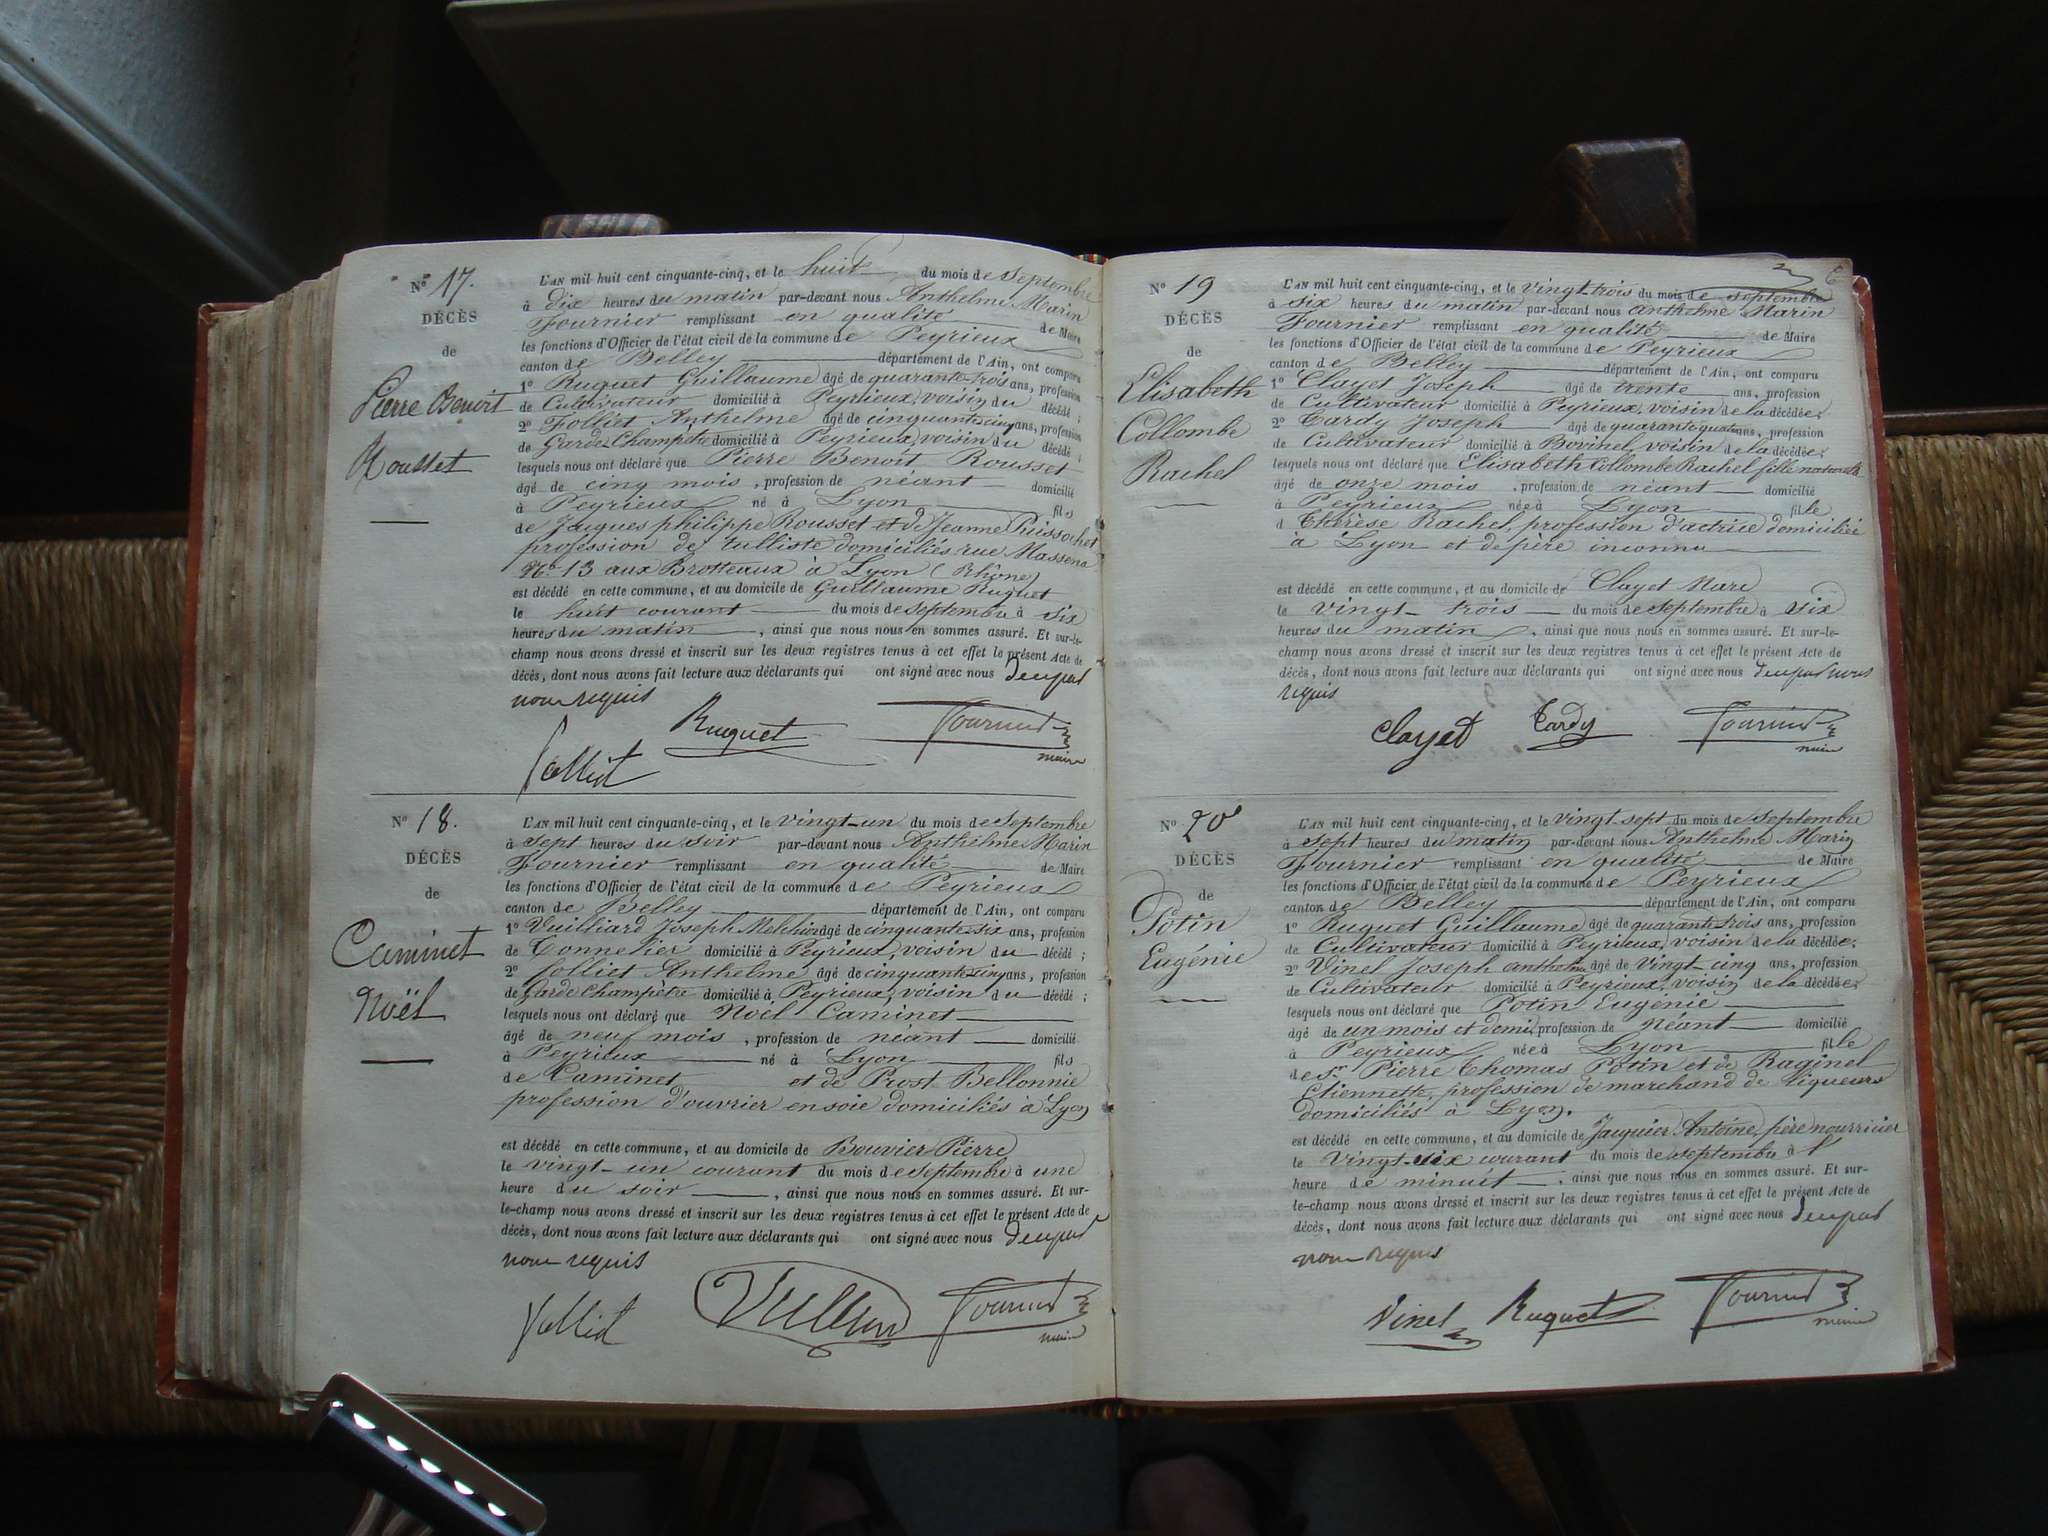 Nº 17.
DÉCÈS
de
Pierre Benoit
Rousset
L'AN mil huit cent cinquante-cinq, et le huit du mois de septembre
à dix heures du matin par-devant nous Anthelme Marin
Fournier remplissant en qualité de Maire
les fonctions d'Officier de l'état civil de la commune de Peyrieux
canton de Belley département de l'Ain, ont comparu
1º Ruguet Guillaume âgé de quarante-trois ans, profession
de Cultivateur domicilié à Peyrieux, voisin du décédé ;
2º Jolliet Anthelme âgé de cinquante cinq ans, profession
de Garde Champêtre domicilié à Peyrieux, voisin du décédé ;
lesquels nous ont déclaré que Pierre Benoît Rousset
âgé de cinq mois, profession de néant domicilié
à Peyrieux né à Lyon fils
de Jaques philippe Rousset et de Jeanne Puissochet
profession de tulliste domiciliés rue Massena
Nº 13 aux Brotteaux à Lyon (Rhône)
est décédé en cette commune, et au domicile de Guillaume Ruguet
le huit courant du mois de septembre à six
heures du matin, ainsi que nous nous en sommes assuré. Et sur-le-
champ nous avons dressé et inscrit sur les deux registres tenus à cet effet le présent Acte de
décès, dont nous avons fait lecture aux déclarants qui ont signé avec nous de ce par
nous requis
Ruguet Fournier
maire
Jolliet
Nº 18.
DÉCÈS
de
Caminet
Noël
L'AN mil huit cent cinquante-cinq, et le vingt-un du mois de septembre
à sept heures du soir par-devant nous Anthelme Marin
Fournier remplissant en qualité de Maire
les fonctions d'Officier de l'état civil de la commune de Peyrieux
canton de Belley département de l'Ain, ont comparu
1º Vuilliard Joseph Melchior âgé de cinquante-six ans, profession
de Tonnelier domicilié à Peyrieux, voisin du décédé ;
2º Jolliet Anthelme âgé de cinquante cinq ans, profession
de Garde Champêtre domicilié à Peyrieux, voisin du décédé ;
lesquels nous ont déclaré que Noël Caminet
âgé de neuf mois, profession de néant domicilié
à Peyrieux né à Lyon fils
de Caminet et de Prost Bellonnie
profession d'ouvrier en soie domiciliés à Lyon
est décédé en cette commune, et au domicile de Bouvier Pierre
le vingt-un courant du mois de septembre à une
heure du soir, ainsi que nous nous en sommes assuré. Et sur-
le-champ nous avons dressé et inscrit sur les deux registres tenus à cet effet le présent Acte de
décès, dont nous avons fait lecture aux déclarants qui ont signé avec nous de ce par
nous requis
Jolliet Fournier
maire
Nº 19
DÉCÈS
de
Elisabeth
Collombe
Rachel
L'AN mil huit cent cinquante-cinq, et le vingt-trois du mois de septembre
à six heures du matin par-devant nous anthelme Marin
Fournier remplissant en qualité de Maire
les fonctions d'Officier de l'état civil de la commune de Peyrieux
canton de Belley département de l'Ain, ont comparu
1º Clayet Joseph âgé de trente ans, profession
de Cultivateur domicilié à Peyrieux, voisin de la décédée;
2º Tardy Joseph âgé de quarante quatre ans, profession
de Cultivateur domicilié à Bovinel, voisin de la décédée;
lesquels nous ont déclaré que Elisabeth Collombe Rachel fille naturelle
âgé de onze mois, profession de néant domicilié
à Peyrieux née à Lyon fille
d Thérèse Rachel, profession d'actrice domiciliée
à Lyon et de père inconnu
est décédé en cette commune, et au domicile de Clayet Marc
le vingt-trois du mois de septembre à six
heures du matin, ainsi que nous nous en sommes assuré. Et sur-le-
champ nous avons dressé et inscrit sur les deux registres tenus à cet effet le présent Acte de
décès, dont nous avons fait lecture aux déclarants qui ont signé avec nous de ce par nous
requis
Clayet Tardy Fournier
maire
Nº 20
DÉCÈS
de
Potin
Eugénie
L'AN mil huit cent cinquante-cinq, et le vingt-sept du mois de septembre
à sept heures du matin par-devant nous Anthelme Marin
Fournier remplissant en qualité de Maire
les fonctions d'Officier de l'état civil de la commune de Peyrieux
canton de Belley département de l'Ain, ont comparu
1º Ruguet Guillaume âgé de quarante-trois ans, profession
de Cultivateur domicilié à Peyrieux, voisin de la décédée;
2º Vinel Joseph anthelme âgé de vingt-cinq ans, profession
de Cultivateur domicilié à Peyrieux, voisin de la décédée;
lesquels nous ont déclaré que Potin Eugénie
âgé de un mois et demi, profession de néant domicilié
à Peyrieux née à Lyon fille
de Sr Pierre Thomas Potin et de Raginel
Etiennette, profession de marchand de liqueurs
domiciliés à Lyon.
est décédé en cette commune, et au domicile de Jacquier Antoine, père nourricier
le vingt-six courant du mois de septembre à l'
heure de minuit, ainsi que nous nous en sommes assuré. Et sur-
le-champ nous avons dressé et inscrit sur les deux registres tenus à cet effet le présent Acte de
décès, dont nous avons fait lecture aux déclarants qui ont signé avec nous de ce par
nous requis
Vinel Ruguet Fournier
maire